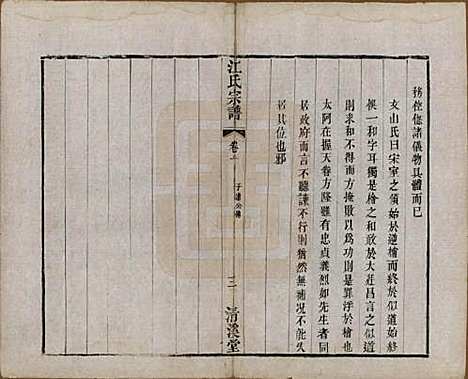 務從儉諸儀物具體而已
文山氏曰宋室之傾始於逆檜而終於似道始終
候一和字耳獨是檜之和敢於大莊昌言之似道
則求和不得而方掩敗以爲功則是罪浮於檜也方
太阿在握天眷方隆雖有忠貞義烈如先生者同
居政府而言不聽諫不行則猶然無補况不能久
居其位也邪
江氏宗譜
卷十
子遠公傳
三
清溪堂